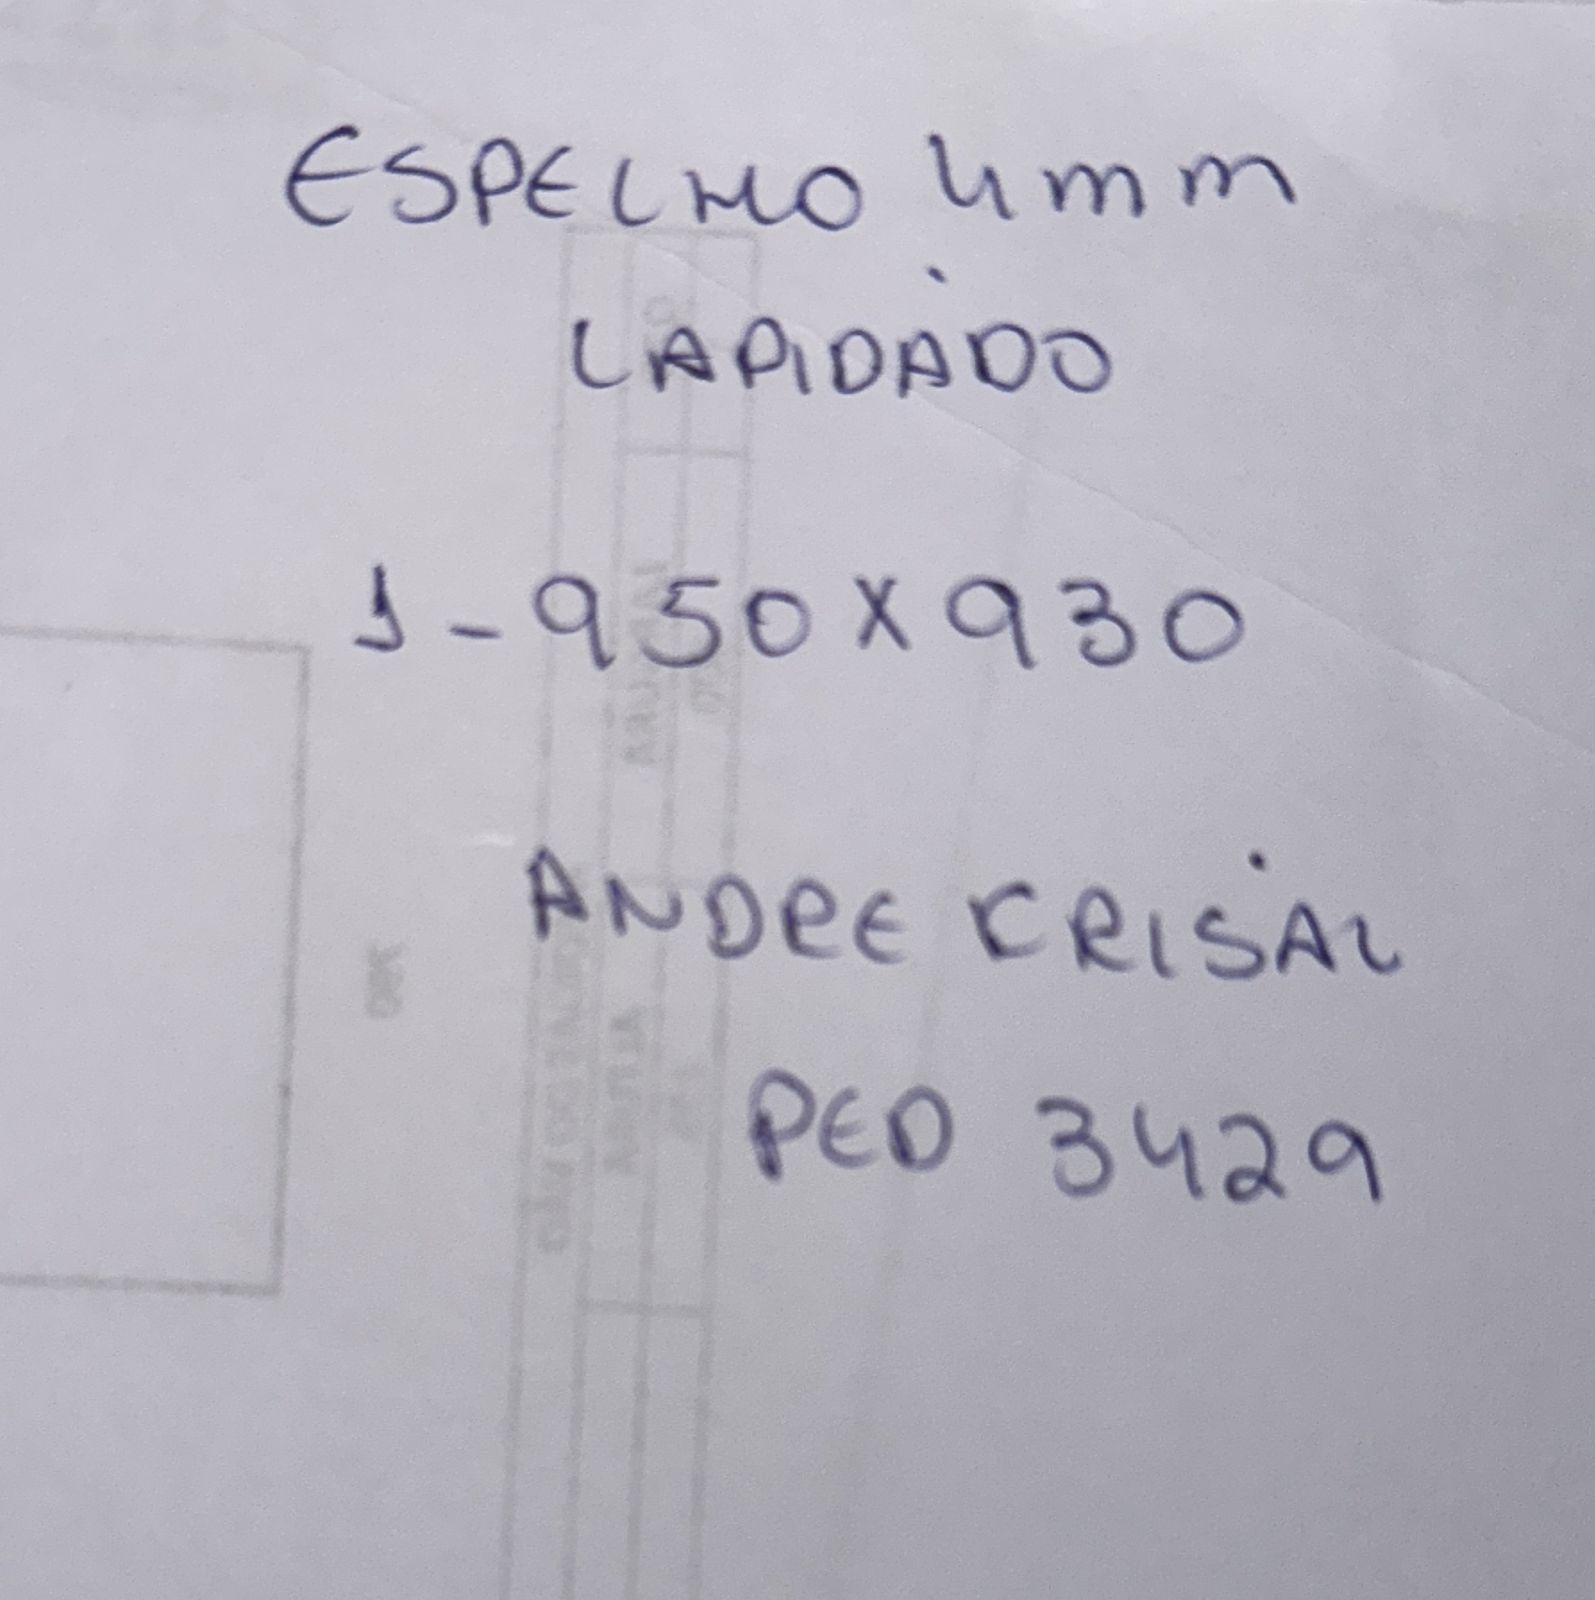 ESPELHO 4mm
LAPIDADO
1 - 950 X 930
ANDRE CRISAL
PED 3429